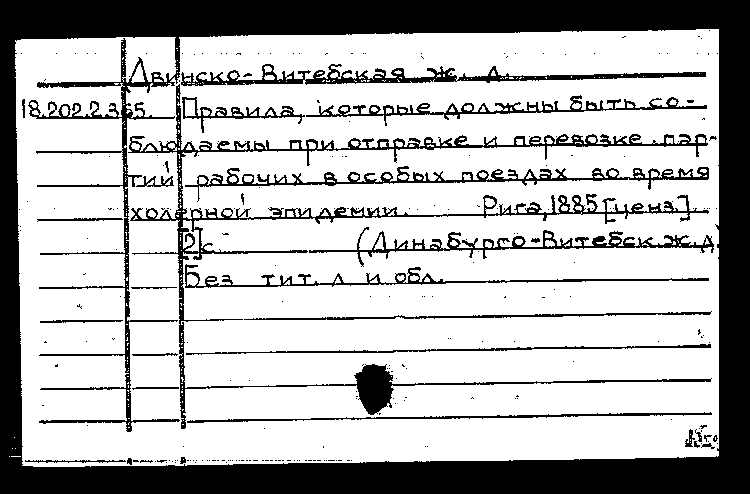 Двинско-Витебская ж. д.
18.202.2.365. Правила, которые должны быть со-
блюдаемы при отправке и перевозке пар-
тий рабочих в особых поездах во время
холерной эпидемии. Рига, 1885 [ценз].
[2]с (Динабурго-Витебск.ж.д)
Без тит. л и обл.